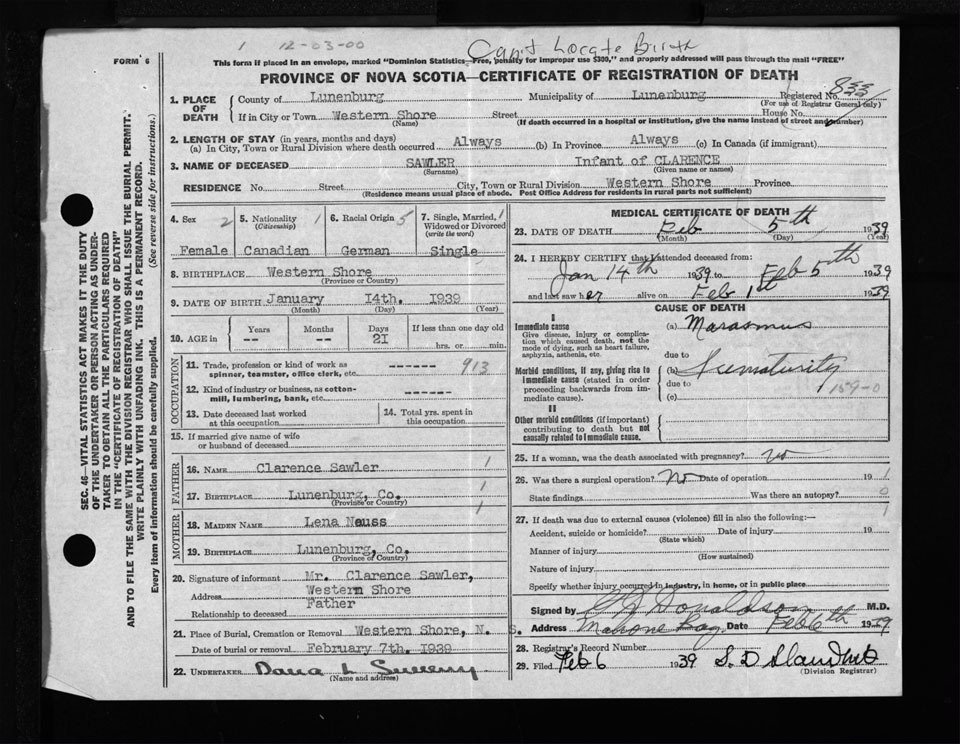 1 12-03-00 Can't Locate Birth
FORM 6
This form if placed in an envelope, marked "Dominion Statistics—Free, penalty for improper use $300," and properly addressed will pass through the mail "FREE"
PROVINCE OF NOVA SCOTIA—CERTIFICATE OF REGISTRATION OF DEATH
SEC. 46—VITAL STATISTICS ACT MAKES IT THE DUTY
OF THE UNDERTAKER OR PERSON ACTING AS UNDER-
TAKER TO OBTAIN ALL THE PARTICULARS REQUIRED
IN THE "CERTIFICATE OF REGISTRATION OF DEATH"
AND TO FILE THE SAME WITH THE DIVISION REGISTRAR WHO SHALL ISSUE THE BURIAL PERMIT.
WRITE PLAINLY WITH UNFADING INK. THIS IS A PERMANENT RECORD.
Every item of information should be carefully supplied. (See reverse side for instructions.)
1. PLACE OF DEATH County of Lunenburg Municipality of Lunenburg Registered No. 833
(For use of Registrar General only)
If in City or Town Western Shore Street House No.
(Name) (If death occurred in a hospital or institution, give the name instead of street and number)
2. LENGTH OF STAY (in years, months and days)
(a) In City, Town or Rural Division where death occurred Always (b) In Province Always (c) In Canada (if immigrant)
3. NAME OF DECEASED SAWLER Infant of CLARENCE
(Surname) (Given name or names)
RESIDENCE No. Street City, Town or Rural Division Western Shore Province
(Residence means usual place of abode. Post Office Address for residents in rural parts not sufficient)
4. Sex 2 5. Nationality 1 (Citizenship) 6. Racial Origin 5 7. Single, Married, 1 Widowed or Divorced (write the word)
Female Canadian German Single
8. BIRTHPLACE Western Shore
(Province or Country)
9. DATE OF BIRTH January 14th. 1939
(Month) (Day) (Year)
10. AGE IN Years Months Days If less than one day old
-- -- 21 hrs. or min.
OCCUPATION
11. Trade, profession or kind of work as spinner, teamster, office clerk, etc. ------ 913
12. Kind of industry or business, as cotton-mill, lumbering, bank, etc. ------
13. Date deceased last worked at this occupation 14. Total yrs. spent in this occupation
15. If married give name of wife or husband of deceased
FATHER
16. NAME Clarence Sawler 1
17. BIRTHPLACE Lunenburg, Co. 1
(Province or Country)
MOTHER
18. MAIDEN NAME Lena Nauss 1
19. BIRTHPLACE Lunenburg, Co.
(Province of Country)
20. Signature of informant Mr. Clarence Sawler,
Address Western Shore
Relationship to deceased Father
21. Place of Burial, Cremation or Removal Western Shore, N. S.
Date of burial or removal February 7th. 1939
22. UNDERTAKER Dana L Sweeny
(Name and address)
MEDICAL CERTIFICATE OF DEATH
23. DATE OF DEATH Feb 5th 1939
(Month) (Day) (Year)
24. I HEREBY CERTIFY that I attended deceased from:
Jan 14th 1939 to Feb 5th 1939
and last saw her alive on Feb 1st 1939
CAUSE OF DEATH
I
Immediate cause (a) Marasmus
Give disease, injury or complication which caused death, not the mode of dying, such as heart failure, asphyxia, asthenia, etc.
due to
Morbid conditions, if any, giving rise to immediate cause (stated in order proceeding backwards from immediate cause). (b) Prematurity
due to 159-0
(c)
II
Other morbid conditions (if important) contributing to death but not causally related to immediate cause.
25. If a woman, was the death associated with pregnancy? no
26. Was there a surgical operation? No Date of operation 19 1
State findings Was there an autopsy? 0
27. If death was due to external causes (violence) fill in also the following:— 1
Accident, suicide or homicide? Date of injury 19
(State which)
Manner of injury
(How sustained)
Nature of injury
Specify whether injury occurred in industry, in home, or in public place
Signed by Donaldson M.D.
Address Mahone Bay Date Feb 6th 1939
28. Registrar's Record Number
29. Filed Feb 6 1939 S. D
(Division Registrar)